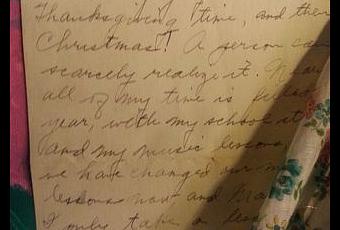 Thanksgiving time, and then
Christmas! A person can
scarcely realize it. Near
all of my time is filled
year, with my school
and my music lessons,
we have changed our
lessons now and
I only take a